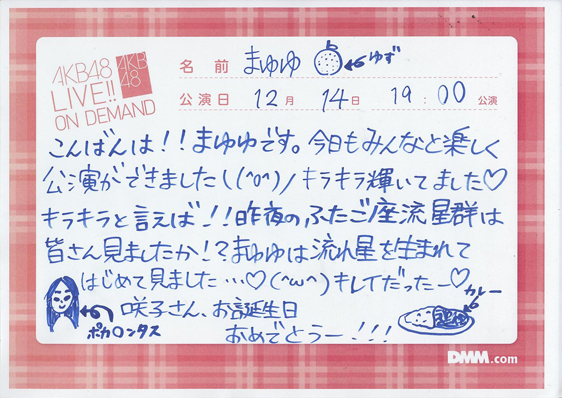 AKB48
LIVE!!
ON DEMAND
AKB
48
名前 まゆゆ ←ゆず
公演日 12月 14日 19:00 公演
こんばんは!!まゆゆです。今日もみんなと楽しく
公演ができました\(^o^)/キラキラ輝いてました♡
キラキラと言えば!!昨夜のふたご座流星群は
皆さん見ましたか!?まゆゆは流れ星を生まれて
はじめて見ました…♡(^ω^)キレイだったー♡
カレー
咲子さん、お誕生日
ポカロンタス
おめでとうー!!!
DMM.com